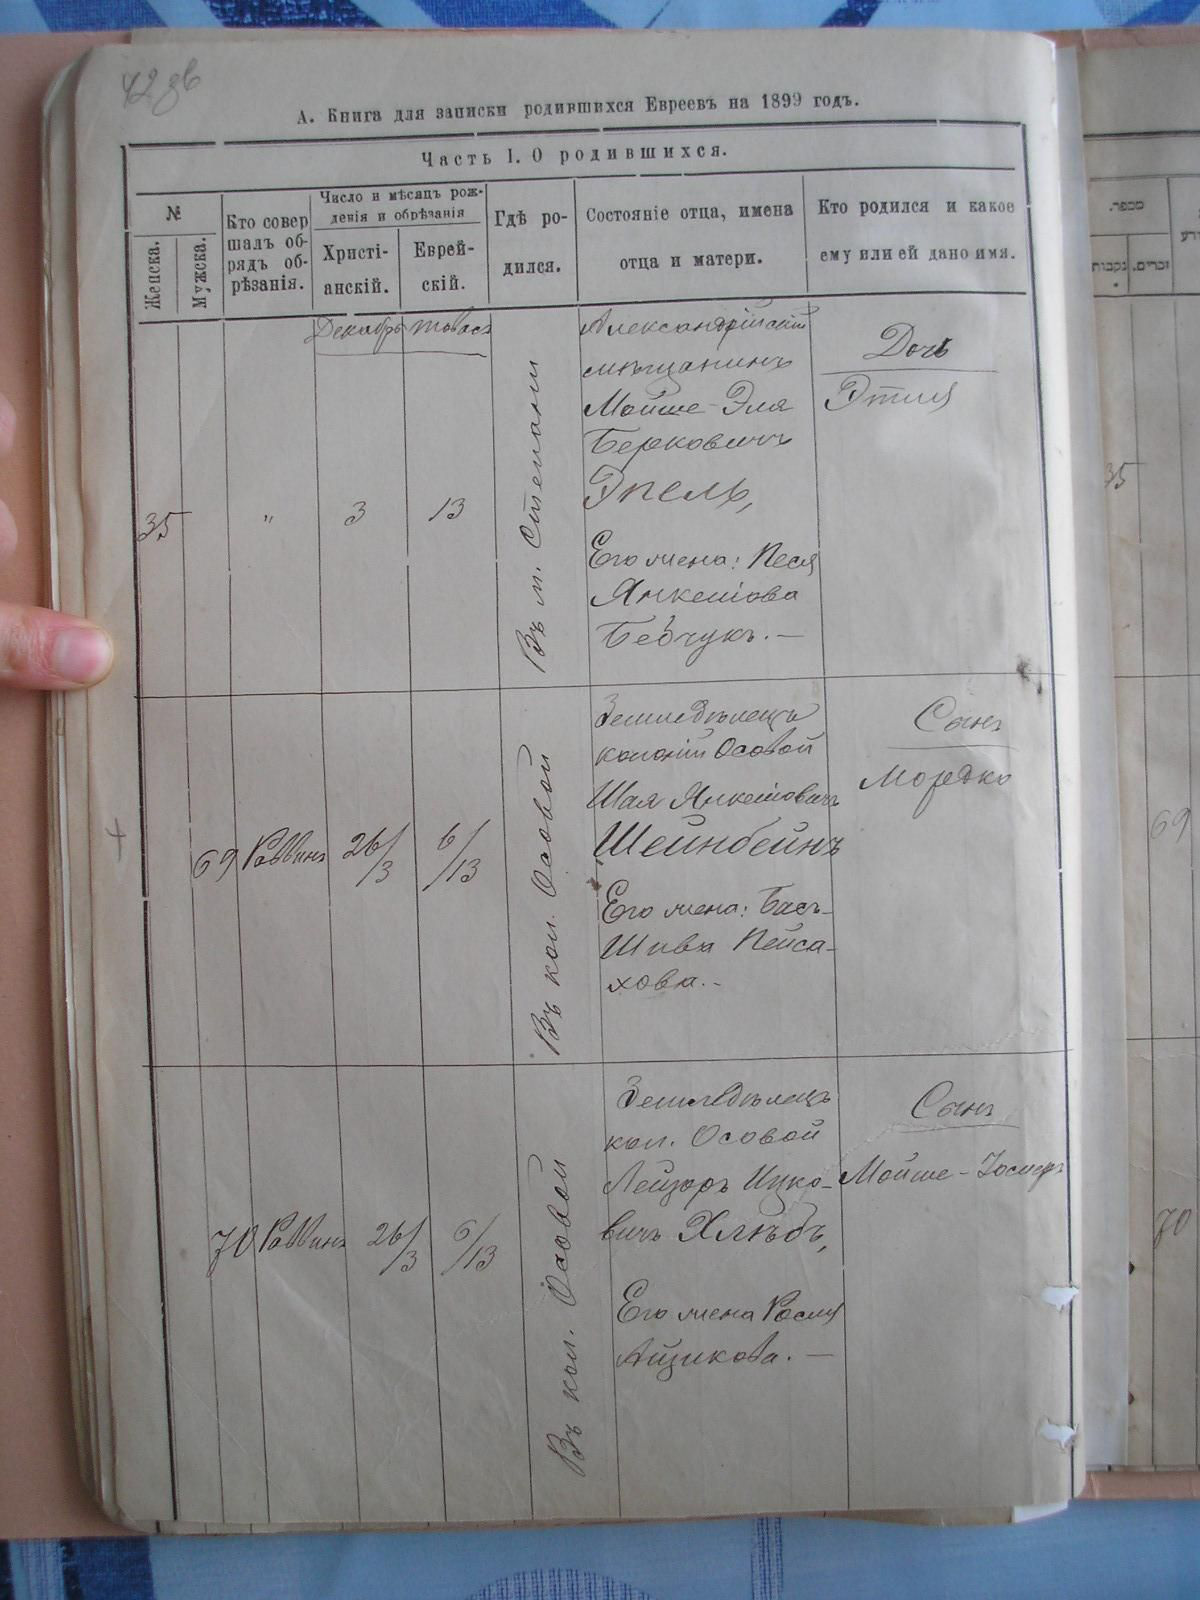 А. Книга для записки родившихся Евреевъ на 1899 годъ.
Часть I. О родившихся.
№
Женска.
Мужска.
Кто совер
шалъ об-
рядъ об-
рѣзанія.
Число и мѣсяцъ рож-
денія и обрѣзанія
Христі-
анскій.
Еврей-
скій.
Гдѣ ро-
дился.
Состояніе отца, имена
отца и матери.
Кто родился и какое
ему или ей дано имя.
Декабрь
35
"
3
13
Въ м. Степани
Александрійскій
мѣщанинъ
Мойше-Эля
Берковичъ
Эпель,
Его жена: Песя
Янкелiова
Дочь
Этля
69
Раввинъ
26/3
6/13
Въ кол. Осовой
Земледѣлецъ
колоніи Осовой
Шая Янкелiовичъ
Шейнбейнъ
Его жена: Бась-
Шива Пейса-
хова.-
Сынъ
Мордко
70
Раввинъ
26/3
6/13
Въ кол. Осовой
Земледѣлецъ
кол. Осовой
Лейзоръ Ицко-
вичъ Хлѣбъ,
Его жена
Сынъ
Мойше-
מספר.
זכרים.
נקבות
35
69
70